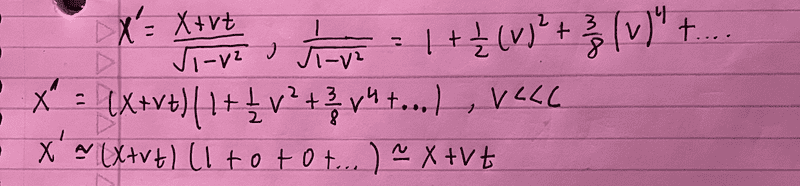 x' = (x+vt)/√(1-v²) , 1/√(1-v²) = 1 + 1/2 (v)² + 3/8 (v)⁴ + ....
x' = (x+vt)(1 + 1/2 v² + 3/8 v⁴ + ...) , v<<c
x' ≃ (x+vt) (1 + 0 + 0 + ...) ≃ x+vt